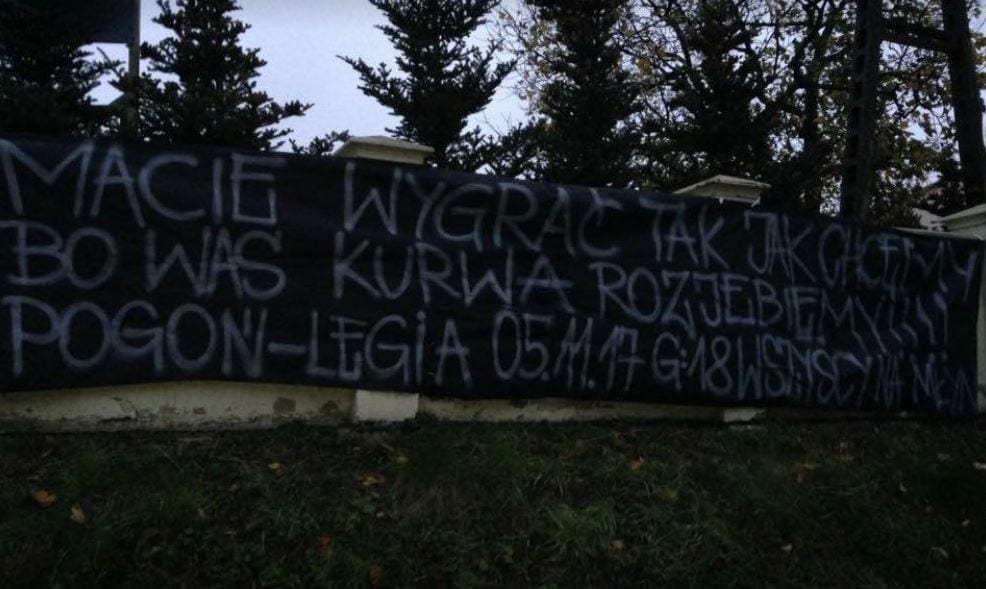 MACIE WYGRAĆ TAK JAK CHCEMY
BO WAS KURWA ROZJEBIEMY!!!!
POGOŃ-LEGIA 05.11.17 G:18 WSZYSCY NA MŁYN